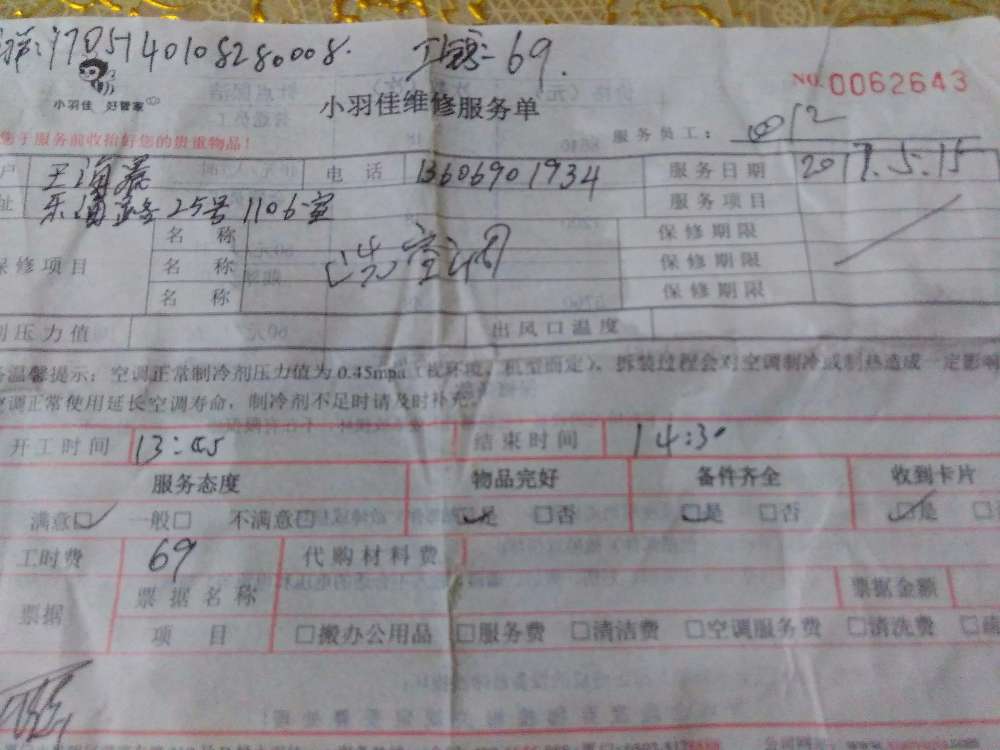 样:9705140108280008. 工: 69.
小羽佳 好管家
小羽佳维修服务单
NO.0062643
您于服务前收拾好您的贵重物品!
服务员工: 012
户 王海 电话 13606901934 服务日期 2017.5.15
址 25号1106室 服务项目
保修项目 名称 洗空调 保修期限
名称 保修期限
名称 保修期限
压力值 出风口温度
务温馨提示: 空调正常制冷剂压力值为0.45mpa(视环境、机型而定),拆装过程会对空调制冷或制热造成一定影响
空调正常使用延长空调寿命,制冷剂不足时请及时补充。
开工时间 13:05 结束时间 14:30
服务态度 物品完好 备件齐全 收到卡片
满意□ 一般□ 不满意□ □是 □否 □是 □否 □是
工时费 69 代购材料费
票据 票据名称 票据金额
项目 □搬办公用品 □服务费 □清洁费 □空调服务费 □清洗费